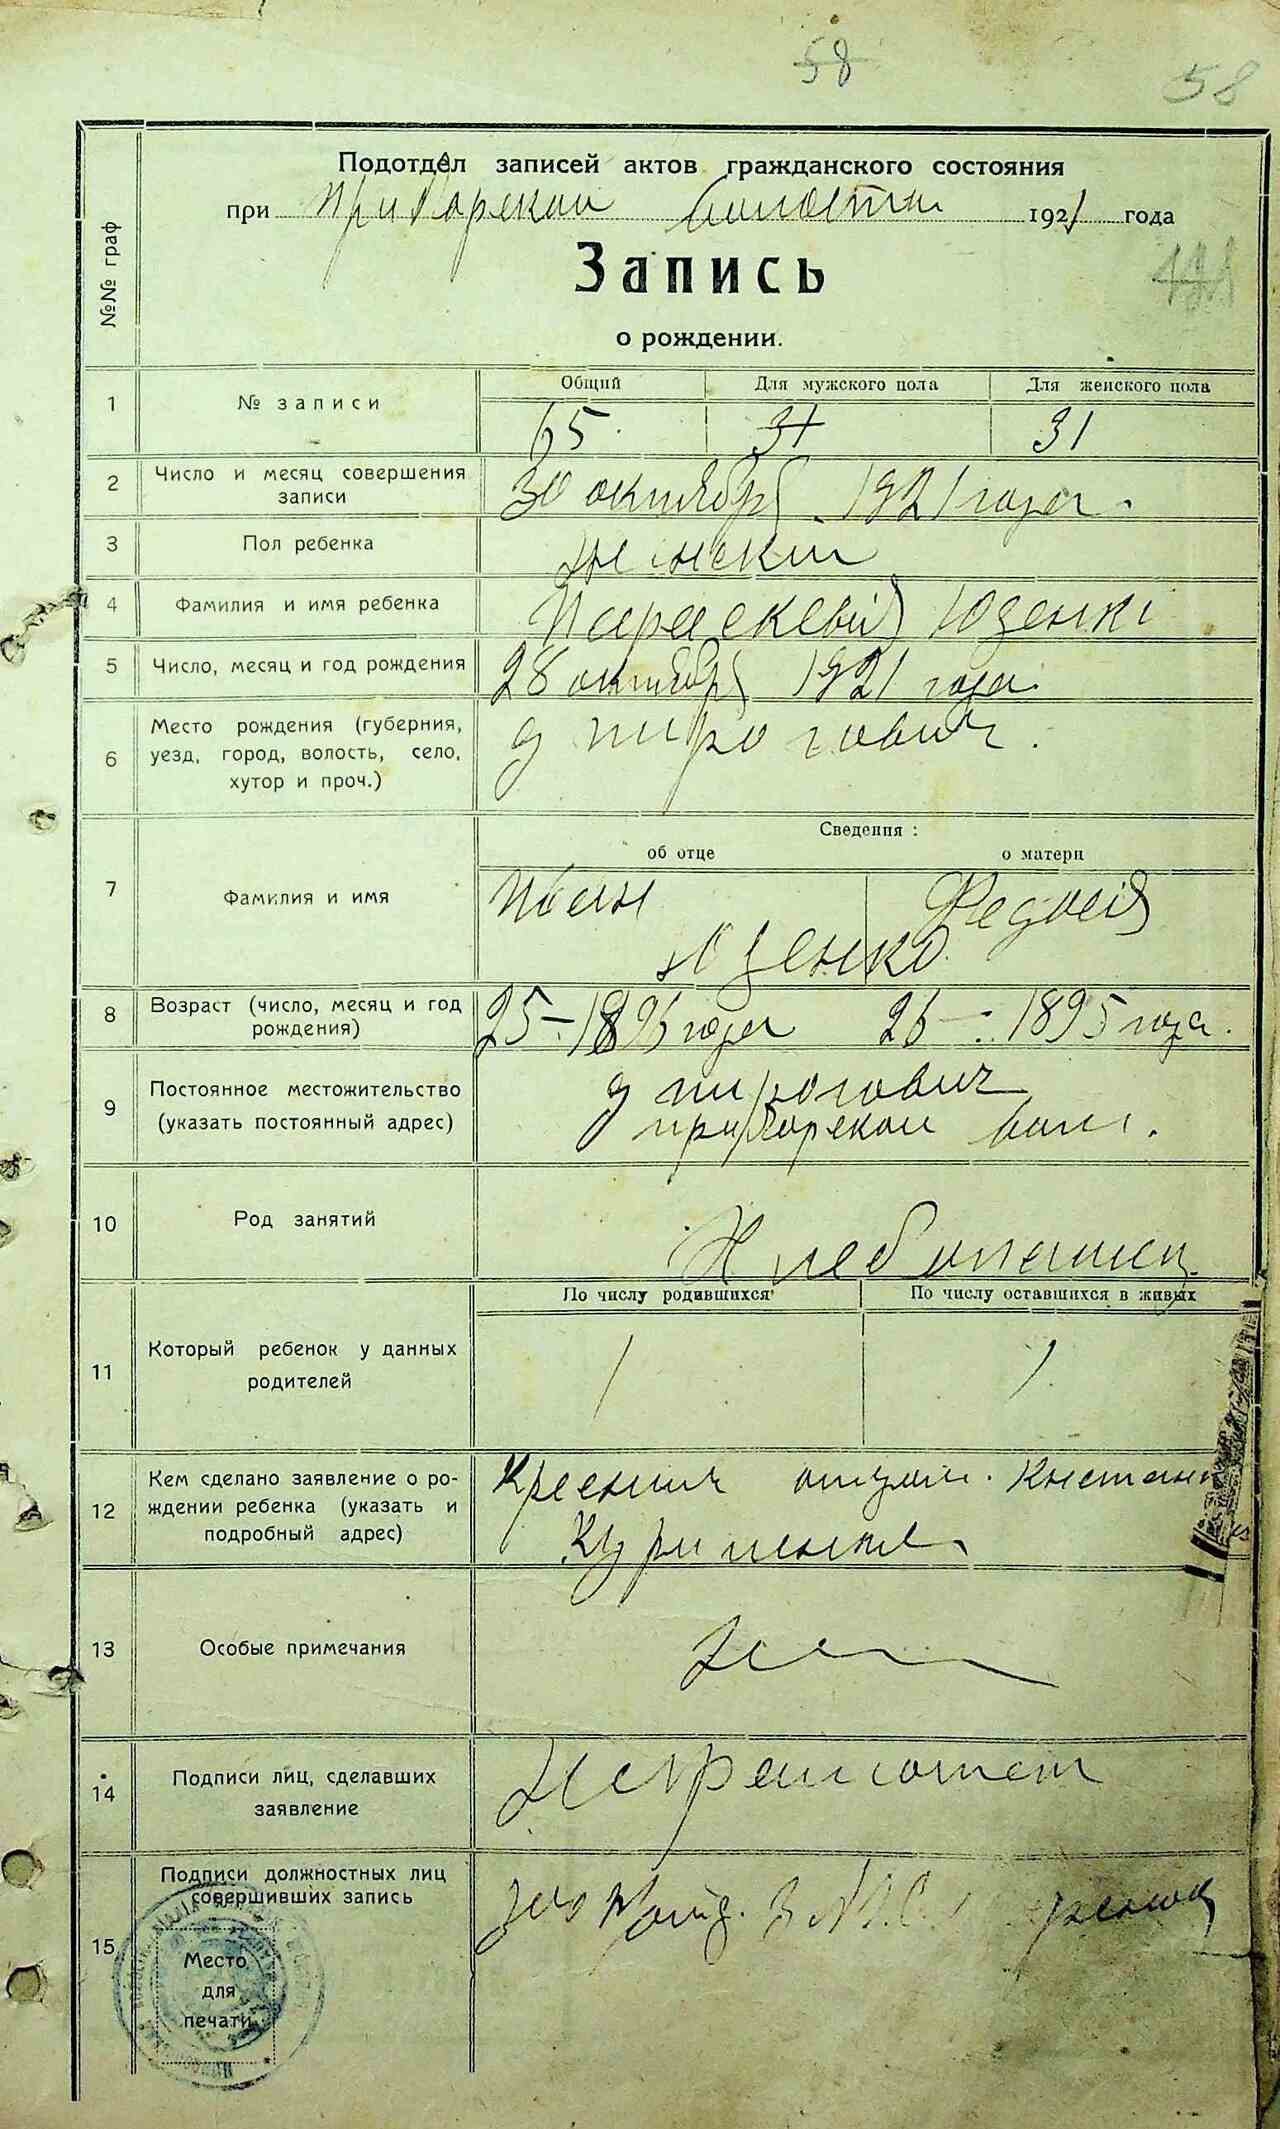 58
58
Подотдел записей актов гражданского состояния
при Приборской волости 1921 года
Запись
о рождении.
№№ граф
Общий Для мужского пола Для женского пола
1 № записи 65 31 31
2 Число и месяц совершения записи 30 октября 1921 года.
3 Пол ребенка женский
4 Фамилия и имя ребенка Параскевія Юзенко
5 Число, месяц и год рождения 28 октября 1921 года.
6 Место рождения (губерния,
уезд, город, волость, село,
хутор и проч.)
д пирогович.
Сведения:
об отце о матери
7 Фамилия и имя Иван
Юзенко
8 Возраст (число, месяц и год
рождения)
25 – 1896 года 26 – 1895 года.
9 Постоянное местожительство
(указать постоянный адрес)
д пирогович
приборской вол.
10 Род занятий Хлебопашец
По числу родившихся По числу оставшихся в живых
11 Который ребенок у данных
родителей
1 1
12 Кем сделано заявление о ро-
ждении ребенка (указать и
подробный адрес)
13 Особые примечания
14 Подписи лиц, сделавших
заявление
Неграмотен
15 Подписи должностных лиц
совершивших запись
Место
для
печати